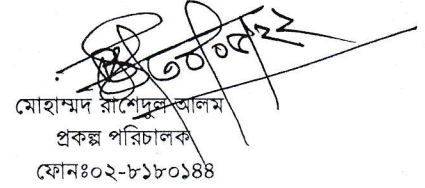 ৩০।০৫।২২
মোহাম্মদ রাশেদুল আলম
প্রকল্প পরিচালক
ফোনঃ০২-৮১৮০১৪৪